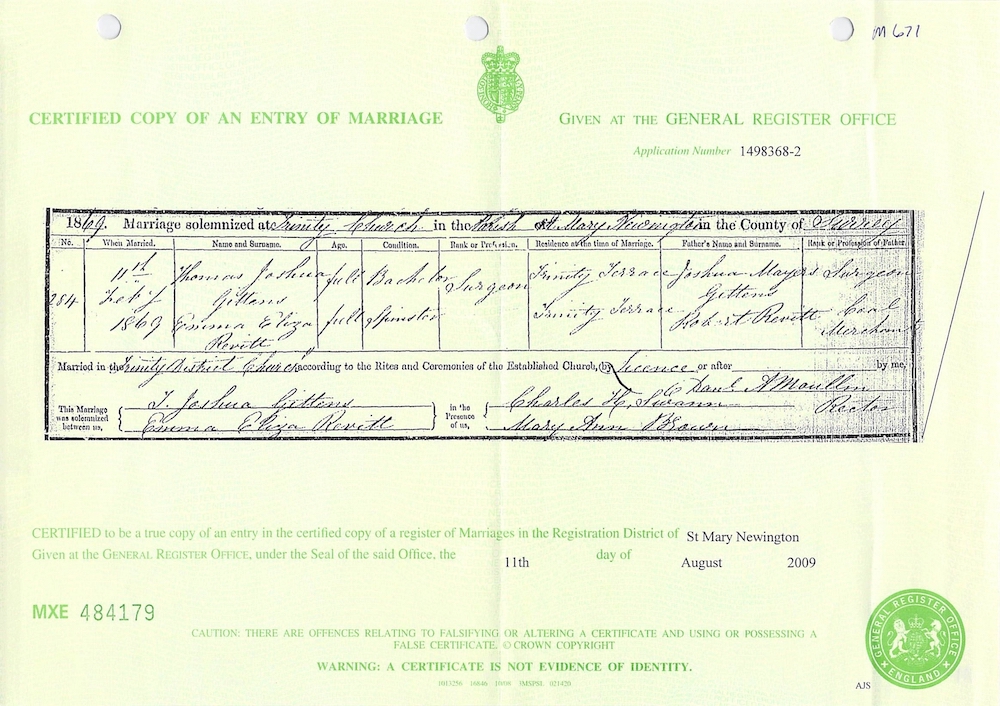 M 671
CERTIFIED COPY OF AN ENTRY OF MARRIAGE
GIVEN AT THE GENERAL REGISTER OFFICE
Application Number 1498368-2
1869. Marriage solemnized at Trinity Church in the Parish of St Mary Newington in the County of Surrey
No. When Married. Name and Surname. Age. Condition. Rank or Profession. Residence at the time of Marriage. Father's Name and Surname. Rank or Profession of Father.
284
11th Feby 1869
Thomas Joshua Gittens full Bachelor Surgeon Trinity Terrace Joshua Mayers Gittens Surgeon
Emma Eliza Revitt full Spinster Trinity Terrace Robert Revitt Coal Merchant
Married in the Trinity District Church according to the Rites and Ceremonies of the Established Church, (by Licence or after by me,
This Marriage was solemnized between us,
T. Joshua Gittens
Emma Eliza Revitt
in the Presence of us,
Charles H. Swann
Mary Ann Brown
Rector
CERTIFIED to be a true copy of an entry in the certified copy of a register of Marriages in the Registration District of St Mary Newington
Given at the GENERAL REGISTER OFFICE, under the Seal of the said Office, the 11th day of August 2009
MXE 484179
CAUTION: THERE ARE OFFENCES RELATING TO FALSIFYING OR ALTERING A CERTIFICATE AND USING OR POSSESSING A
FALSE CERTIFICATE. © CROWN COPYRIGHT
WARNING: A CERTIFICATE IS NOT EVIDENCE OF IDENTITY.
GENERAL REGISTER OFFICE
ENGLAND
AJS